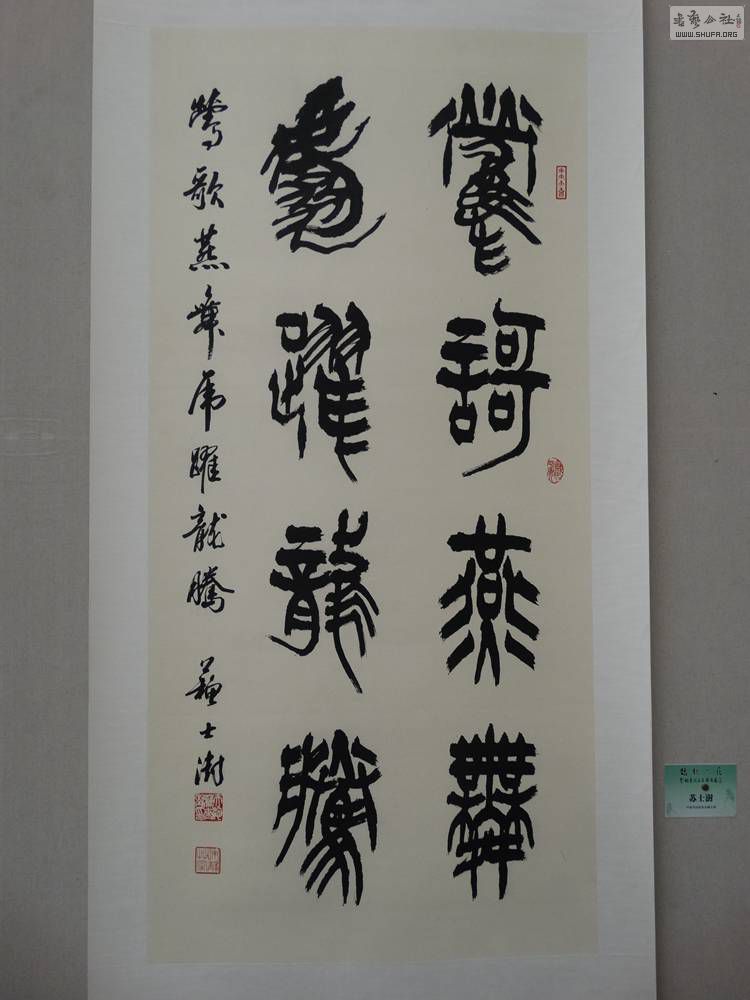 鶯謌燕舞
虎躍龍騰
鶯歌燕舞虎躍龍騰 蘇士澍
苏士澍
书艺公社
WWW.SHUFA.ORG